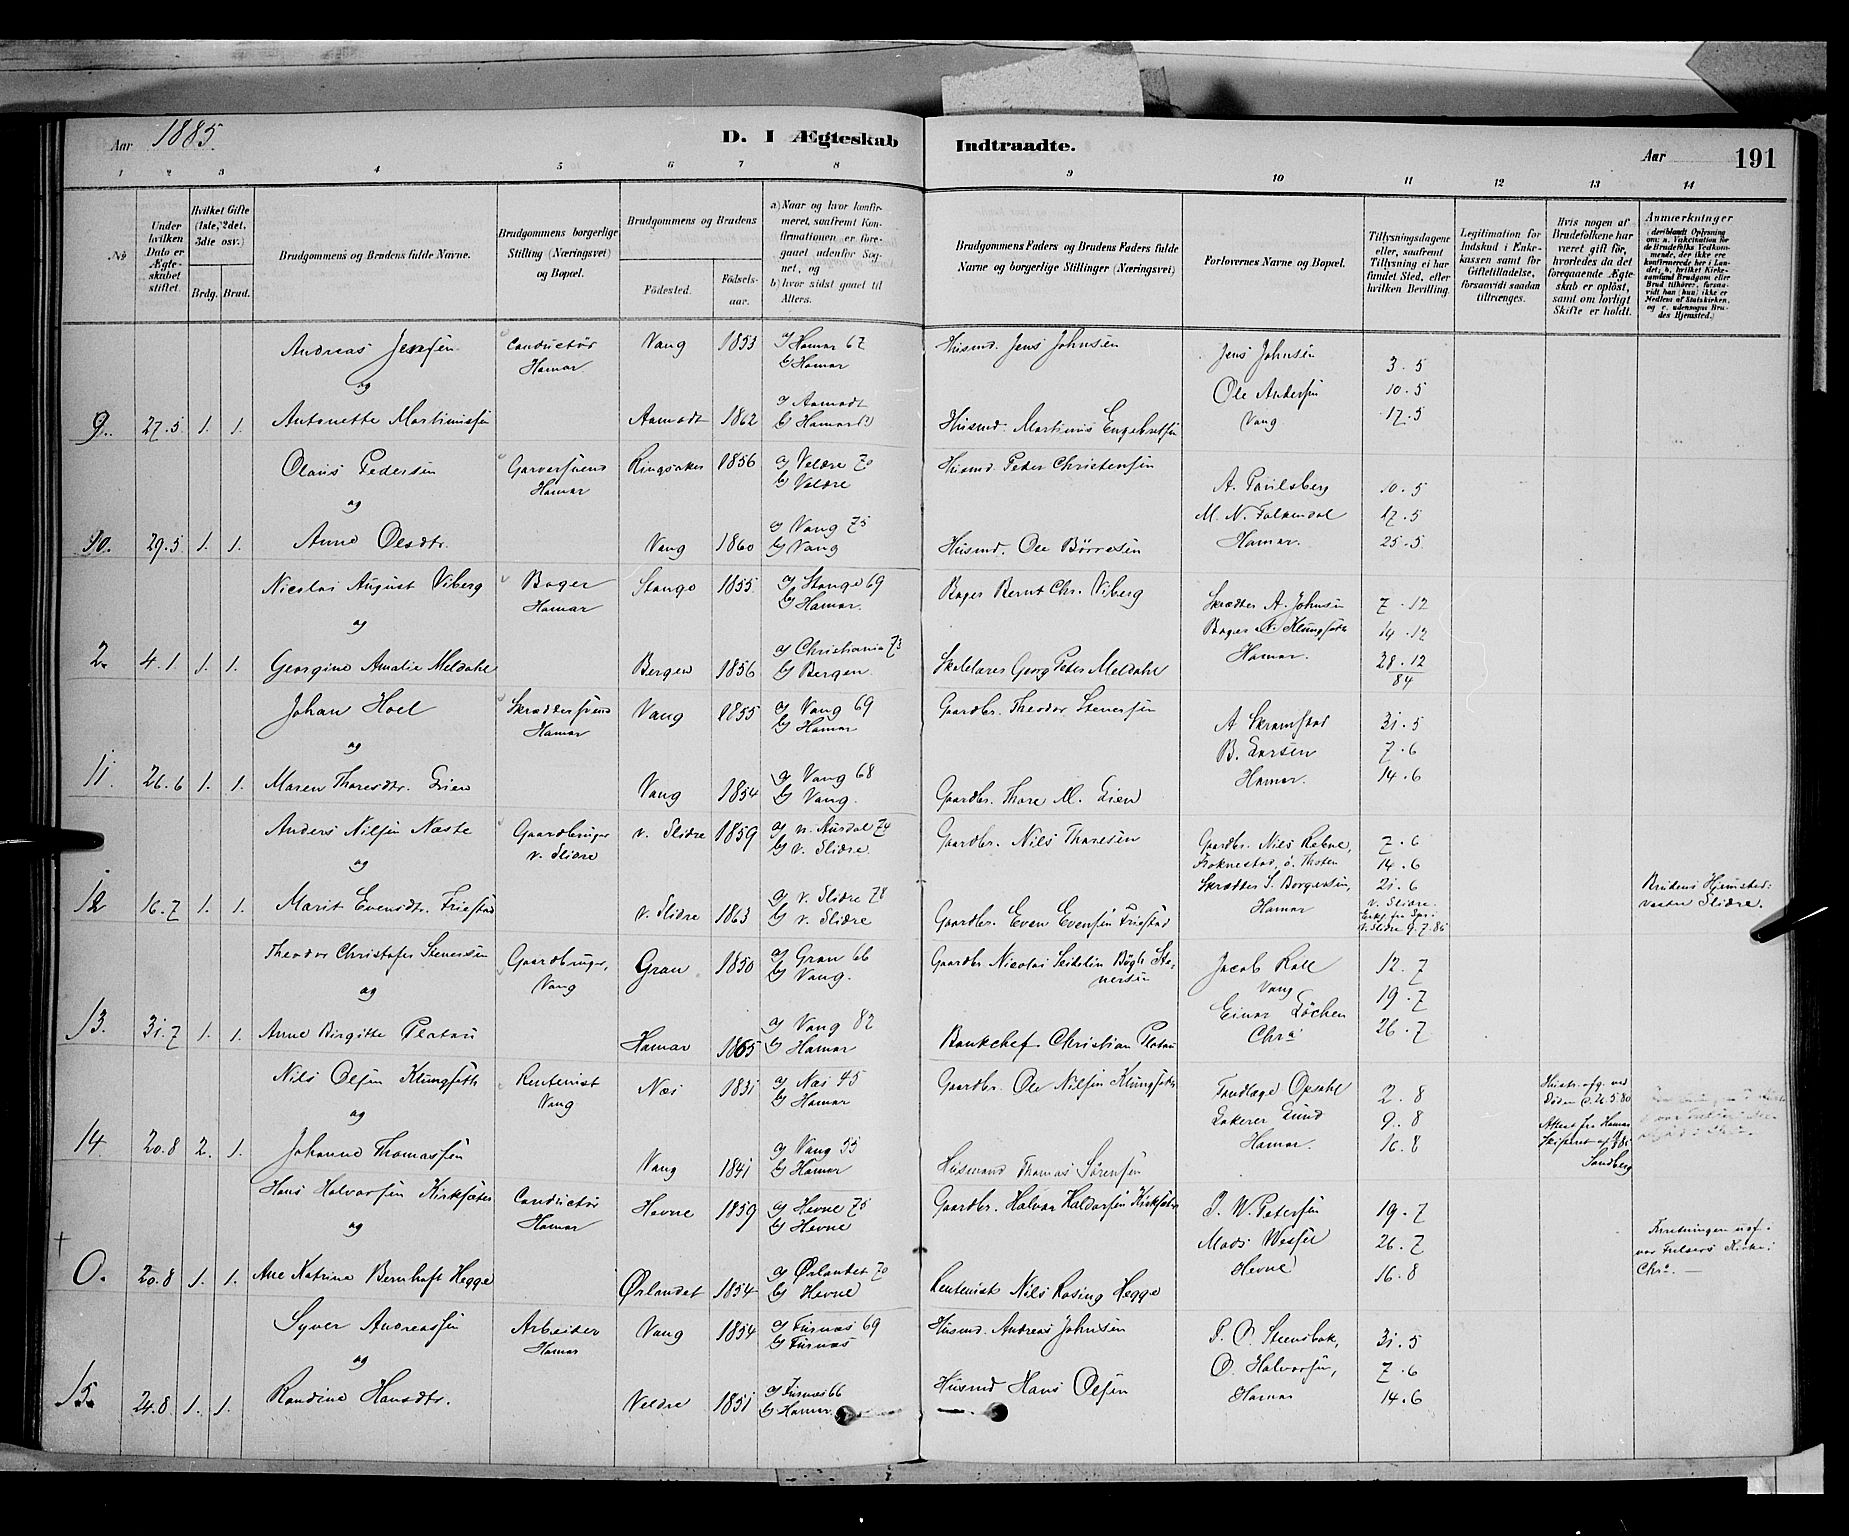 Aar 1885.
D. I Ægteskab Indtraadte.
Aar 191
1 2 3 4 5 6 7 8 9 10 11 12 13 14
No
Under hvilken Dato er Ægteskabet stiftet.
Hvilket Gifte (1ste, 2det, 3die osv.)
Brdg. Brud.
Brudgommens og Brudens fulde Navne.
Brudgommens borgerlige Stilling (Næringsvei) og Bopæl.
Brudgommens og Brudens
Fødested.
Fødselsaar.
a) Naar og hvor konfirmeret, saafremt Konfirmationen er foregaaet udenfor Sognet, og
b) hvor sidst gaaet til Alters.
Brudgommens Faders og Brudens Faders fulde Navne og borgerlige Stillinger (Næringsvei)
Forlovernes Navne og Bopæl.
Tillysningsdagene eller, saafremt Tillysning ei har fundet Sted, efter hvilken Bevilling.
Legitimation for Indskud i Enkekassen samt for Giftetilladelse, forsaavidt saadan tiltrænges.
Hvis nogen af Brudefolkene har været gift før, hvorledes da det foregaaende Ægteskab er opløst, samt om lovligt Skifte er holdt.
Anmærkninger
Andreas Jensen Conductør Vang 1853 a) Hamar 67 Husmd. Jens Johnsen Jens Johnsen 3.5
og Hamar b) Hamar Ole Andersen 10.5
9. 27.5 1. 1. Antonette Martinusen Aamodt 1862 a) Aamodt b) Hamar Husmd. Martinus Engebretsen Vang 17.5
Olaus Pedersen Garversvend Ringsaker 1856 a) Veldre 70 Husmd. Peter Christensen A. Paulsberg 10.5
og Hamar b) Veldre M. N. Falkendal 17.5
10. 29.5 1. 1. Anne Olsdtr. Vang 1860 a) Vang 75 b) Vang Husmd. Ole Børresen Hamar. 25.5
Nicolai August Viberg Bager Stange 1855 a) Stange 69 Bager Bernt Chr. Viberg Skrædder A. Johnsen 7.12
og Hamar b) Hamar. Bager N. Klungseth 14.12
2. 4.1 1. 1. Georgine Amalie Meldahl Bergen 1856 a) Christiania 73 b) Bergen Skolelærer Georg Peter Meldahl Hamar. 28.12 84
Johan Hoel Skræddersvend Vang 1855 a) Vang 69 Gaardbr. Theodor Stenersen A Skramstad 31.5
og Hamar b) Hamar B. Larsen 7.6
11. 26.6 1. 1. Maren Thoresdtr. Lien Vang 1854 a) Vang 68 b) Vang. Gaardbr. Thore M. Lien Hamar. 14.6
Anders Nilsen Næste Gaardbruger v. Slidre 1859 a) n. Aurdal 74 Gaardbr. Nils Thoresen Gaardbr. Nils Rebne, 7.6
og v. Slidre b) v. Slidre 14.6
12 16.7 1. 1. Marit Evensdtr. Friestad v. Slidre 1863 a) v. Slidre 78 b) v. Slidre Gaardbr. Even Evensen Friestad Skrædder S. Borgersen, Hamar 21.6 v. Slidre. v. Slidre 9.7.85 Brudens Hjemsted: vestre Slidre.
Theodor Christofer Stenersen Gaardbruger, Gran 1850 a) Gran 66 Gaardbr Nicolai Seidelin Bøgh Stenersen Jacob Roll 12.7
og Vang b) Vang. Vang 19.7
13. 31.7 1. 1. Anne Birgitte Platou Hamar 1865 a) Vang 82 b) Hamar Bankchef. Christian Platou Einar Løchen Chra 26.7
Nils Olsen Klungseth Rentenist Næs 1831 a) Næs 45 Gaardbr. Ole Nilsen Klungseth Tandlæge Opsahl 2.8 Hustr. afg. ved Døden 26.5.80
og Vang b) Hamar Lund 9.8 Attest fra Hamar
14. 20.8 2. 1. Johanne Thomassen Vang 1841 a) Vang 55 b) Hamar Husmand Thomas Sørensen Hamar. 16.8 Sandberg
Hans Halvorsen Kirksæter Conductør Hevne 1859 a) Hevne 75 Gaardbr. Halvor Haldorsen Kirksæter P. W. Petersen 19.7
og Hamar b) Hevne Mads Wessel 26.7
+
0. 20.8 1. 1. Ane Katrine Bernhoft Hegge Ørlandet 1854 a) Ørlandet 70 b) Hevne Rentenist Nils Rosing Hegge Hevne 16.8 Forretningen udf. var Frelsers Kirke i Chra. —
Syver Andreassen Arbeider Vang 1854 a) Furnæs 69 Husmd. Andreas Johnsen P. O. Steensbak, 31.5
og Hamar b) Furnæs O. Halvorsen, 7.6
15. 24.8. 1. 1. Randine Hansdtr. Veldre 1851 a) Furnæs 66 b) Hamar. Husmd Hans Olsen Hamar 14.6